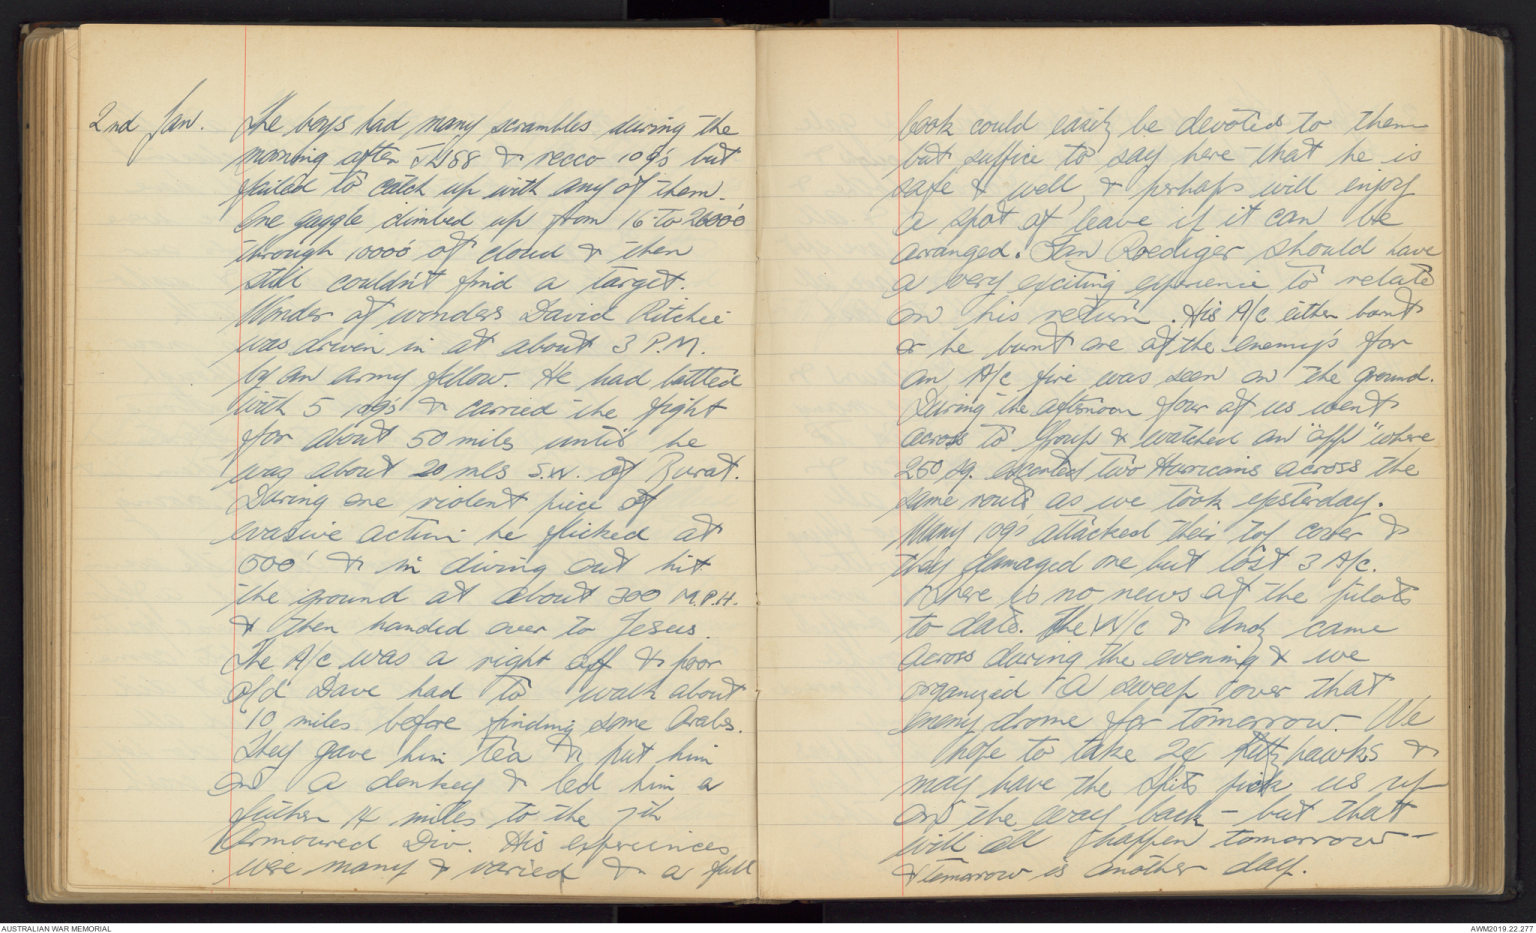 2nd Jan. The boys had many scrambles during the
morning after JU88 & recco 109's but
failed to catch up with any of them.
One gaggle climbed up from 16 to 26000'
through 10000' of cloud & then
still couldn't find a target.
Wonder of wonders David Ritchie
was driven in at about 3 P.M.
by an army fellow. He had battled
with 5 109's & carried the fight
for about 50 miles until he
was about 20 mls S.W. of Burat.
During one violent piece of
evasive action he flicked at
500' & in diving out hit
the ground at about 300 M.P.H.
& then handed over to Jesus.
The A/c was a right off & poor
old Dave had to walk about
10 miles before finding some Arabs.
They gave him tea & put him
on a donkey & led him a
further 14 miles to the 7th
Armoured Div. His experiences
were many & varied & a full
book could easily be devoted to them
but suffice to say here that he is
safe & well, & perhaps will enjoy
a spot of leave if it can be
arranged. Ian Roediger should have
a very exciting experience to relate
on his return. His A/c either burnt
or he burnt one of the enemy's for
an A/c fire was seen on the ground.
During the afternoon four of us went
across to Group & watched an "off" where
260 sq. escorted two Hurricanes across the
same route as we took yesterday.
Many 109's attacked their top cover &
they damaged one but lost 3 A/c.
There is no news of the pilots
to date. The W/c & Andy came
across during the evening & we
organized a sweep over that
enemy drome for tomorrow. We
hope to take 24 Kittyhawks &
may have the Spits pick us up
on the way back - but that
will all happen tomorrow -
& tomorrow is another day.
AUSTRALIAN WAR MEMORIAL
AWM2019.22.277